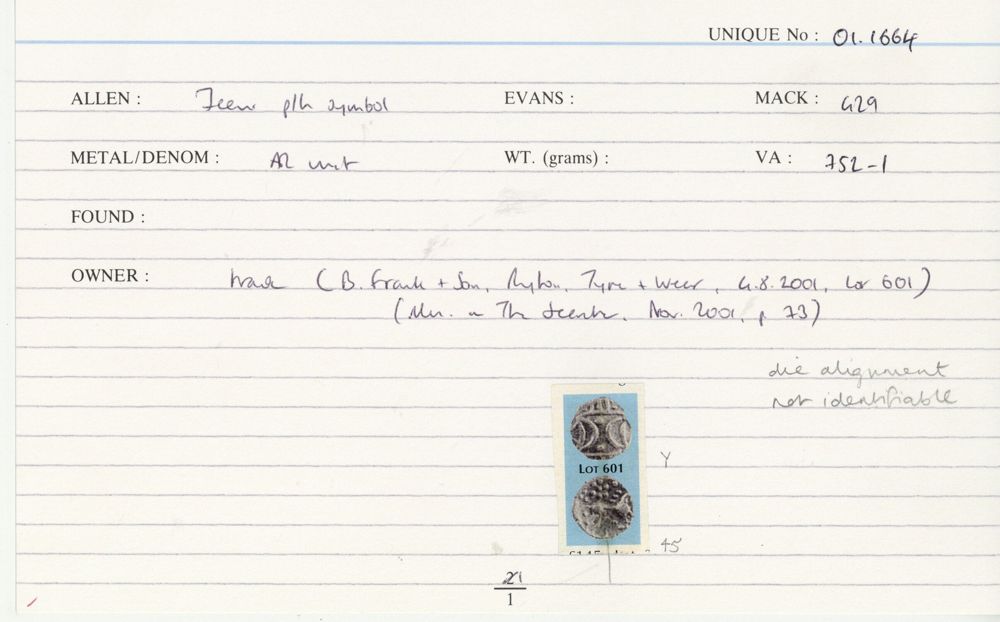 UNIQUE No : 01.1664
ALLEN : Iceni p/h symbol EVANS : MACK : 429
METAL/DENOM : AR unit WT. (grams) : VA : 752-1
FOUND :
OWNER : trade (B. Frank + Son, Ryton, Tyne + Wear, 4.8.2001, Lot 601)
(Illus. in The Searcher, Nov. 2001, p 73)
die alignment
not identifiable
LOT 601
Y
45
21
1